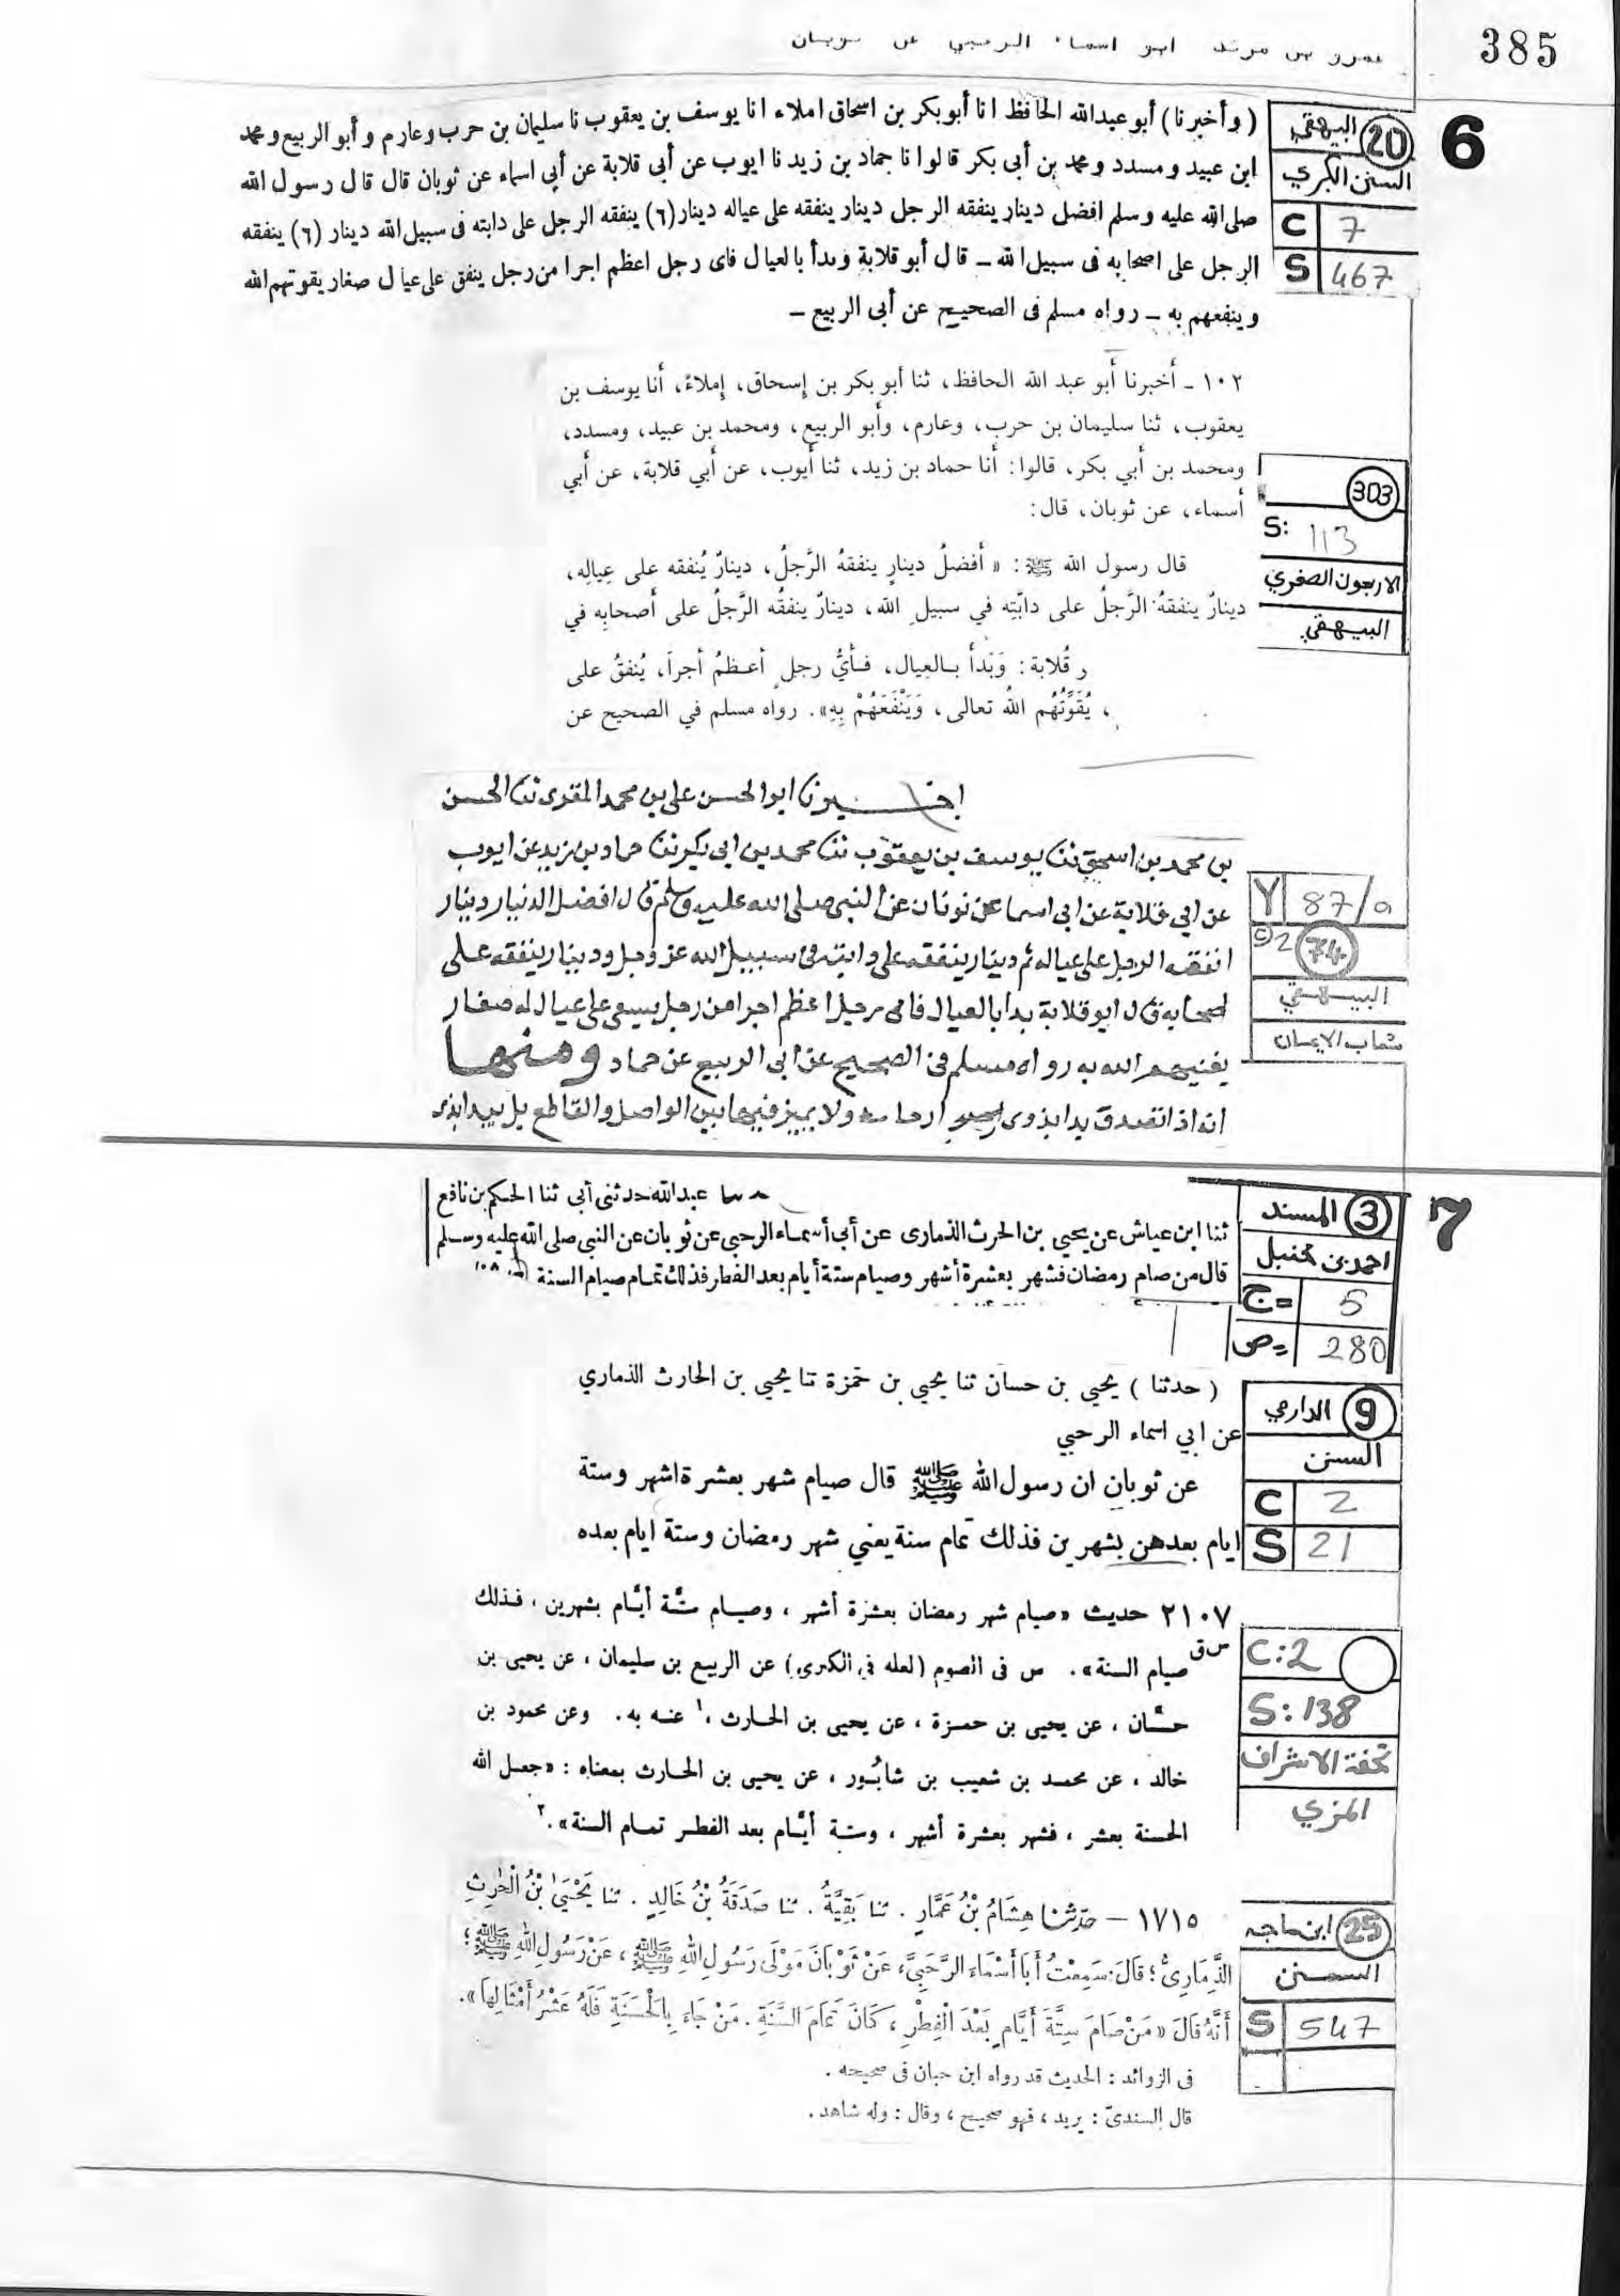 385
عمرو بن مرثد ابو اسماء الرحبي عن ثوبان
6
20 البيهقي
السنن الكبرى
C 7
S 467
(وأخبرنا) أبو عبدالله الحافظ انا أبو بكر بن اسحاق املاء انا يوسف بن يعقوب نا سليمان بن حرب وعارم وأبو الربيع ومحمد
ابن عبيد ومسدد ومحمد بن أبى بكر قالوا نا حماد بن زيد نا ايوب عن أبى قلابة عن أبى اسماء عن ثوبان قال قال رسول الله
صلى الله عليه وسلم افضل دينار ينفقه الرجل دينار ينفقه على عياله دينار (٦) ينفقه الرجل على دابته فى سبيل الله دينار (٦) ينفقه
الرجل على اصحابه فى سبيل الله ــ قال أبو قلابة وبدأ بالعيال فاى رجل اعظم اجرا من رجل ينفق على عيال صغار يقوتهم الله
وينفعهم به ــ رواه مسلم فى الصحيح عن أبى الربيع ــ
١٠٢ ـ أخبرنا أبو عبد الله الحافظ، ثنا أبو بكر بن إسحاق، إملاءً، أنا يوسف بن
يعقوب، ثنا سليمان بن حرب، وعارم، وأبو الربيع، ومحمد بن عبيد، ومسدد،
ومحمد بن أبي بكر، قالوا: أنا حماد بن زيد، ثنا أيوب، عن أبي قلابة، عن أبي
أسماء، عن ثوبان، قال:
303
S: 113
الاربعون الصغري
البيهقي
قال رسول الله ﷺ: «أفضلُ دينارٍ ينفقهُ الرَّجلُ، دينارٌ يُنفقه على عِيالِه،
دينارٌ ينفقهُ الرَّجلُ على دابّتِه في سبيلِ الله، دينارٌ ينفقُه الرَّجلُ على أصحابِه في
قُلابة: وَبَدأ بـالعِيال، فـأيُّ رجلٍ أعـظمُ أجراً، يُنفقُ على
، يُقَوِّتُهُم اللهُ تعالى، وَيَنْفَعَهُمْ بِهِ». رواه مسلم في الصحيح عن
اخبرنا ابو الحسن على بن محمد المقرى ثنا الحسن
بن محمد بن اسحق ثنا يوسف بن يعقوب ثنا محمد بن ابى بكر ثنا حماد بن زيد عن ايوب
عن ابى قلابة عن ابى اسما عن ثوبان عن النبى صلى الله عليه وسلم قال افضل الدينار دينار
انفقه الرجل على عياله ثم دينار ينفقه على دابته فى سبيل الله عز وجل ودينار ينفقه على
اصحابه قال ابو قلابة بدا بالعيال فاى رجل اعظم اجرا من رجل يسعى على عيال له صغار
يغنيهم الله به رواه مسلم فى الصحيح عن ابى الربيع عن حماد ومنها
انه اذا تصدق بدا بذوى ارحامه ولا يميز فيها بين الواصل والقاطع بل يبدا بذى
Y 87/a
C) 2 74
البيهقي
شعاب الايمان
7
3 المسند
احمد بن حنبل
ج= 5
ص= 280
حدثنا عبد الله حدثنى أبى ثنا الحكم بن نافع
ثنا ابن عياش عن يحيى بن الحرث الذمارى عن أبى أسماء الرحبى عن ثوبان عن النبى صلى الله عليه وسلم
قال من صام رمضان فشهر بعشرة أشهر وصيام ستة أيام بعد الفطر فذلك تمام صيام السنة
9 الدارمي
السنن
C 2
S 21
(حدثنا) يحيي بن حسان ثنا يحيي بن حمزة ثنا يحيي بن الحارث الذماري
عن ابي اسماء الرحبي
عن ثوبان ان رسول الله ﷺ قال صيام شهر بعشرة اشهر وستة
ايام بعدهن بشهرين فذلك تمام سنة يعني شهر رمضان وستة ايام بعده
٢١٠٧ حديث «صيام شهر رمضان بعشرة أشهر ، وصيام ستّة أيّام بشهرين ، فذلك
س ق صيام السنة». س فى الصوم (لعله فى الكبرى) عن الربيع بن سليمان ، عن يحيى بن
حسّان ، عن يحيى بن حمزة ، عن يحيى بن الحارث ،١ عنه به. وعن محمود بن
خالد ، عن محمد بن شعيب بن شابُور ، عن يحيى بن الحارث بمعناه : «جعل الله
الحسنة بعشر ، فشهر بعشرة أشهر ، وستة أيّام بعد الفطر تمام السنة».٢
C:2
S:138
تحفة الاشراف
المزي
25 ابن ماجه
السنن
S 547
١٧١٥ — حَدَّثَنَا هِشَامُ بْنُ عَمَّارٍ . ثنا بَقِيَّةُ . ثنا صَدَقَةُ بْنُ خَالِدٍ . ثنا يَحْيَىٰ بْنُ الْحٰرِثِ
الذِّمَارِىُّ ؛ قَالَ: سَمِعْتُ أَبَا أَسْمَاءَ الرَّحَبِىَّ، عَنْ ثَوْبَانَ مَوْلَى رَسُولِ اللهِ ﷺ ، عَنْ رَسُولِ اللهِ ﷺ ؛
أَنَّهُ قَالَ «مَنْ صَامَ سِتَّةَ أَيَّامٍ بَعْدَ الْفِطْرِ ، كَانَ تَمَامَ السَّنَةِ . مَنْ جَاءَ بِالْحَسَنَةِ فَلَهُ عَشْرُ أَمْثَالِهَا».
فى الزوائد : الحديث قد رواه ابن حبان فى صحيحه .
قال السندىّ : يريد ، فهو صحيح ، وقال : وله شاهد .